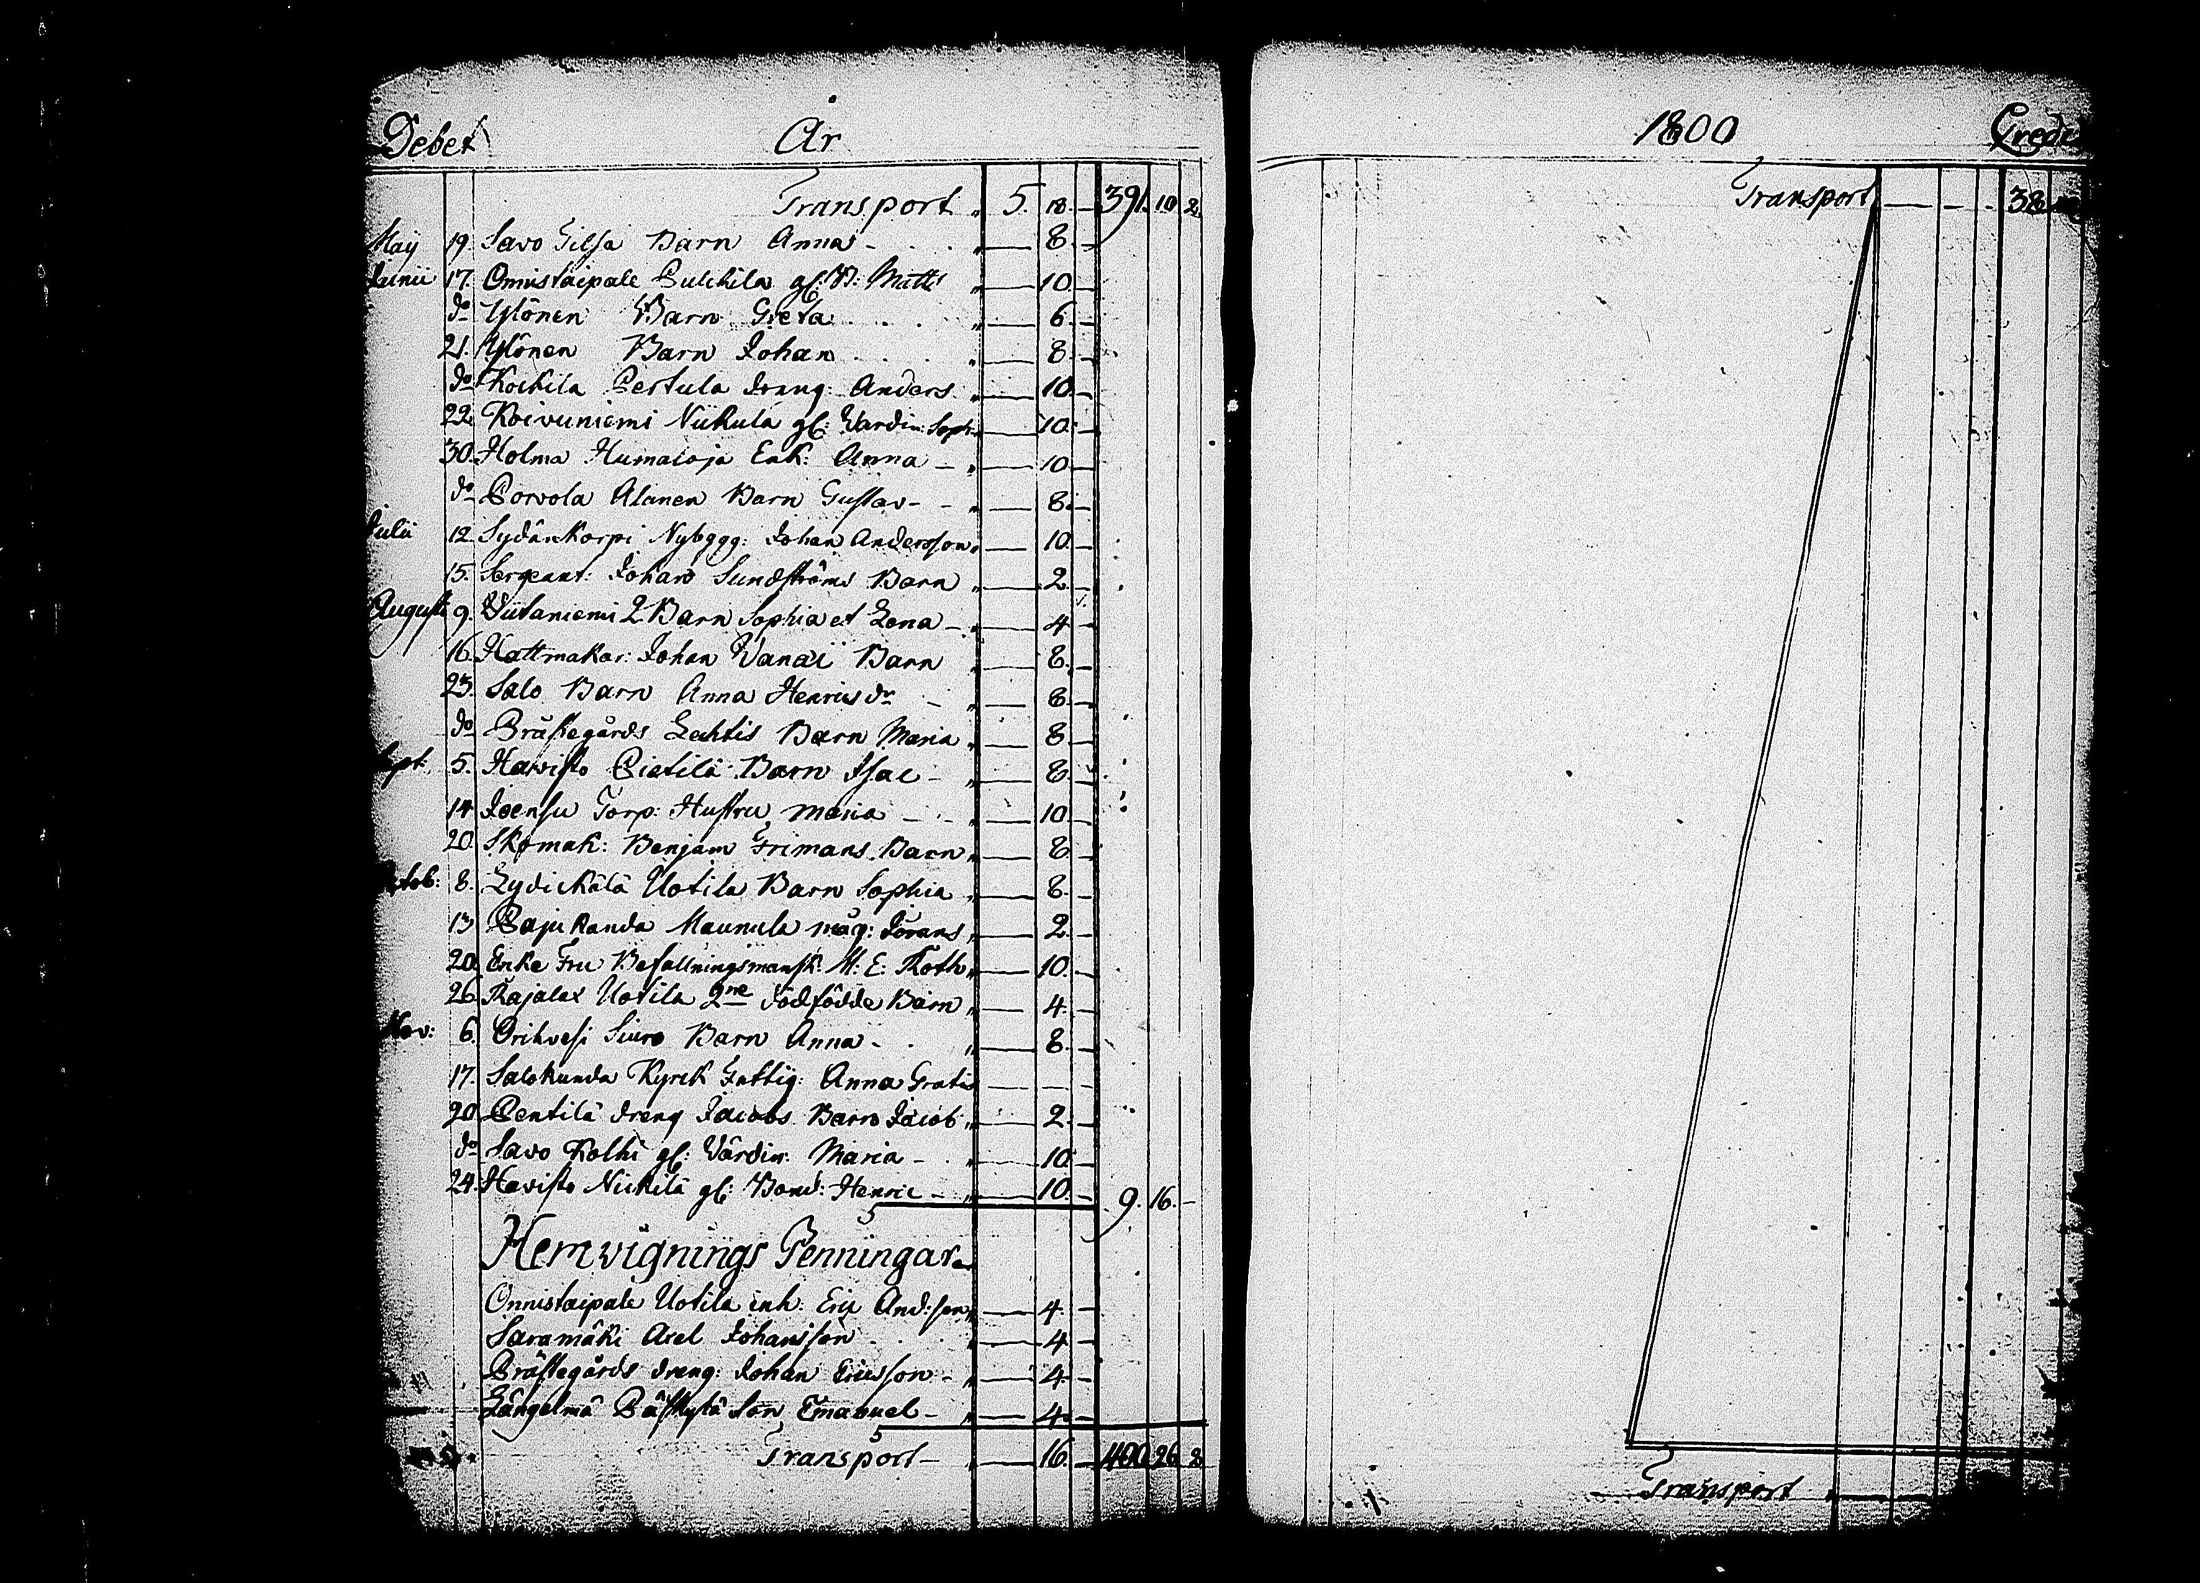 Debet År
Transport „ 5. 18. — 391. 10 2
May 19. Savo Gilja Barn Anna — „ — 8. —
Junii 17. Onnistaipale Pulckila gl: W: Matts „ — 10. —
do Ylönen Barn Greta „ — 6. —
21. Ylönen Barn Johan „ — 8. —
do Koikila Pertula dräng Anders „ — 10. —
22. Koivuniemi Nikula gl: Wärdin: Soph: „ — 10. —
30. Holma Humaloja Enk: Anna — „ — 10 —
do Porvola Alanen Barn Gustav — „ — 8. —
Julii 12 Sydänkorpi Nybygg: Johan Andersson „ — 10. —
15. Sergeant: Johan Sundströms Barn „ — 2. —
Augusti 9. Viitaniemi 2 Barn Sophia et Lena — „ — 4 —
16. Hattmakar: Johan Wanai Barn „ — 8. —
23. Salo Barn Anna Henricsdr — „ — 8. —
do Prästegårds Lahtis Barn Maria „ — 8 —
Sept: 5. Havisto Pietilä Barn Isac — „ — 8. —
14 Joensu Torp: Hustru Maria — „ — 10. —
20. Skomak: Benjam Frimans Barn „ — 8 —
Octob: 8. Lydickälä Uotila Barn Sophia „ — 8. —
13 Pajukanda Maunula måg: Jörans „ — 2. —
20. Enke Fru Befallningsmansk: M: E: Roth „ — 10. —
26. Rajalax Uotila 2ne dödfödde Barn „ — 4. —
Nov: 6. Orihvesi Siuro Barn Anna — „ — 8. —
17. Salokunda Kyrck Fattig: Anna Gratis — — —
20. Pentilä dreng Jacobs Barn Jacob „ — 2. —
do Savo Kolhi gl: Värdin: Maria — „ — 10. —
24. Havisto Nickilä gl: Bond: Henric — „ — 10. — 9. 16. —
Hemvignings Penningar
Onnistaipale Uotila inh: Eric And:son „ — 4. —
Saramäki Axel Johansson — 4 —
Prästegårds dreng: Johan Ericsson — „ — 4. —
Längelmä Päskylä Son Emanuel — „ — 4. —
Transport — „ — 16. — 400 26 2
1800 Credit
Transport — — — 38
Transport „ —